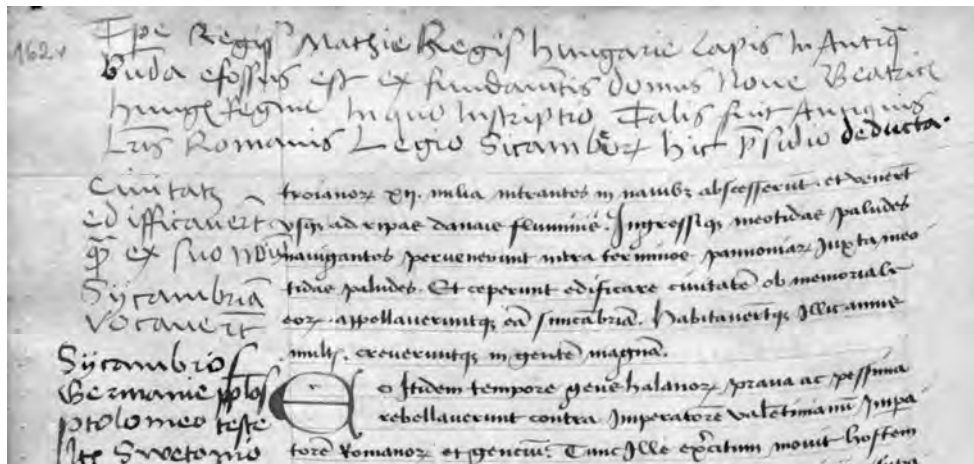 162v
Tpe Regis Mathie Regis hungarie Lapis In Antiq̃
Buda efossus est ex fundam̃tis domus Noue Beatrice
hung̃ Regine In quo Inscriptio Talis fuit Antiquis
Lr̃is Romanis Legio Sicambroꝝ hic p̃sidio deducta.
Ciuitatẽ
edifficauer̃t
q̃ ex suo noĩe
Sycambriã
vocauer̃t
Sycambros
Germanie pp̃los
ptolomeo teste
Itẽ Swetonio
troianoꝝ xij. milia intrantes in nauibꝫ abscesserũt. et vener̃t
vsqꝫ ad ripas danaie fluminis. Ingressiqꝫ meotidas paludes
nauigantes peruenerunt intra terminos pannoniaꝝ Juxta meo
tidas paludes. Et ceperunt edificare ciuitatẽ ob memoriale
eoꝝ. appellaueruntqꝫ eã sincãbriã. habitauer̃tqꝫ Jllic annis
mult̃. creueruntqꝫ in gentẽ magnã.
Eo Itidem tempore gens halanoꝝ praua ac pessima
rebellauerunt contra Imperatorẽ valẽtinianũ Impa
torẽ Romanoꝝ et genciũ. Tunc Jlle exc̃itum mouit hostem